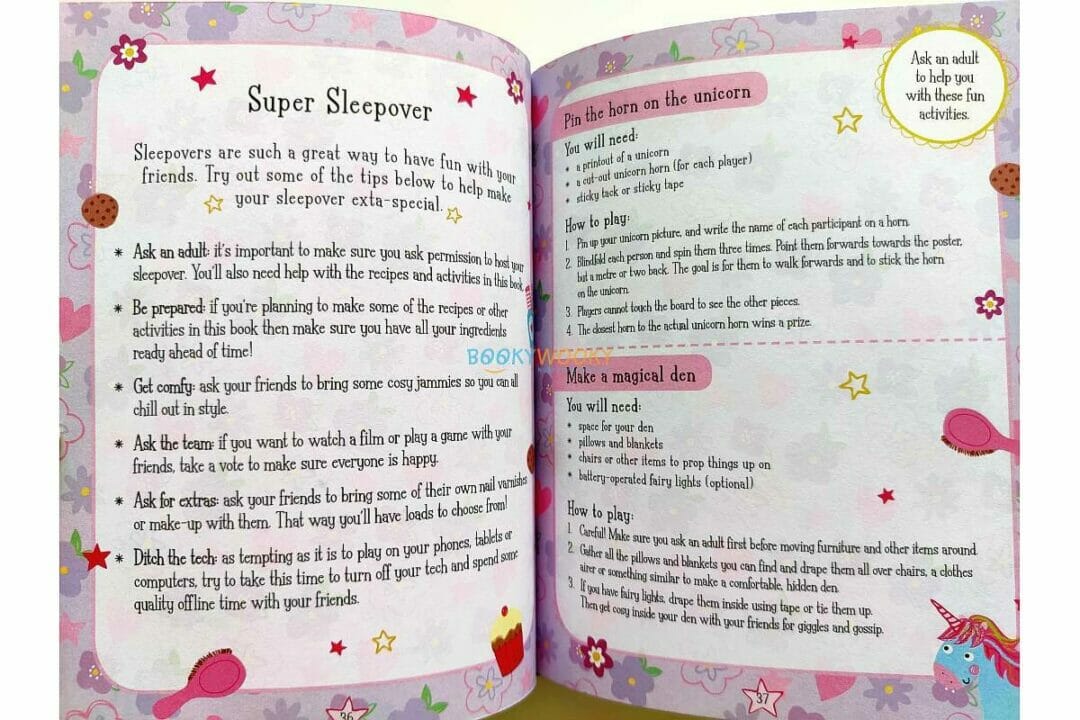 Super Sleepover
Sleepovers are such a great way to have fun with your
friends. Try out some of the tips below to help make
your sleepover exta-special.
* Ask an adult: it's important to make sure you ask permission to host your
sleepover. You'll also need help with the recipes and activities in this book.
* Be prepared: if you're planning to make some of the recipes or other
activities in this book then make sure you have all your ingredients
ready ahead of time!
* Get comfy: ask your friends to bring some cosy jammies so you can all
chill out in style.
* Ask the team: if you want to watch a film or play a game with your
friends, take a vote to make sure everyone is happy.
* Ask for extras: ask your friends to bring some of their own nail varnishes
or make-up with them. That way you'll have loads to choose from!
* Ditch the tech: as tempting as it is to play on your phones, tablets or
computers, try to take this time to turn off your tech and spend some
quality offline time with your friends.
36
BOOKYWOOKY
Ask an adult
to help you
with these fun
activities.
Pin the horn on the unicorn
You will need:
• a printout of a unicorn
• a cut-out unicorn horn (for each player)
• sticky tack or sticky tape
How to play:
1. Pin up your unicorn picture, and write the name of each participant on a horn.
2. Blindfold each person and spin them three times. Point them forwards towards the poster,
but a metre or two back. The goal is for them to walk forwards and to stick the horn
on the unicorn.
3. Players cannot touch the board to see the other pieces.
4. The closest horn to the actual unicorn horn wins a prize.
Make a magical den
You will need:
• space for your den
• pillows and blankets
• chairs or other items to prop things up on
• battery-operated fairy lights (optional)
How to play:
1. Careful! Make sure you ask an adult first before moving furniture and other items around.
2. Gather all the pillows and blankets you can find and drape them all over chairs, a clothes
airer or something similar to make a comfortable, hidden den.
3. If you have fairy lights, drape them inside using tape or tie them up.
Then get cosy inside your den with your friends for giggles and gossip.
37